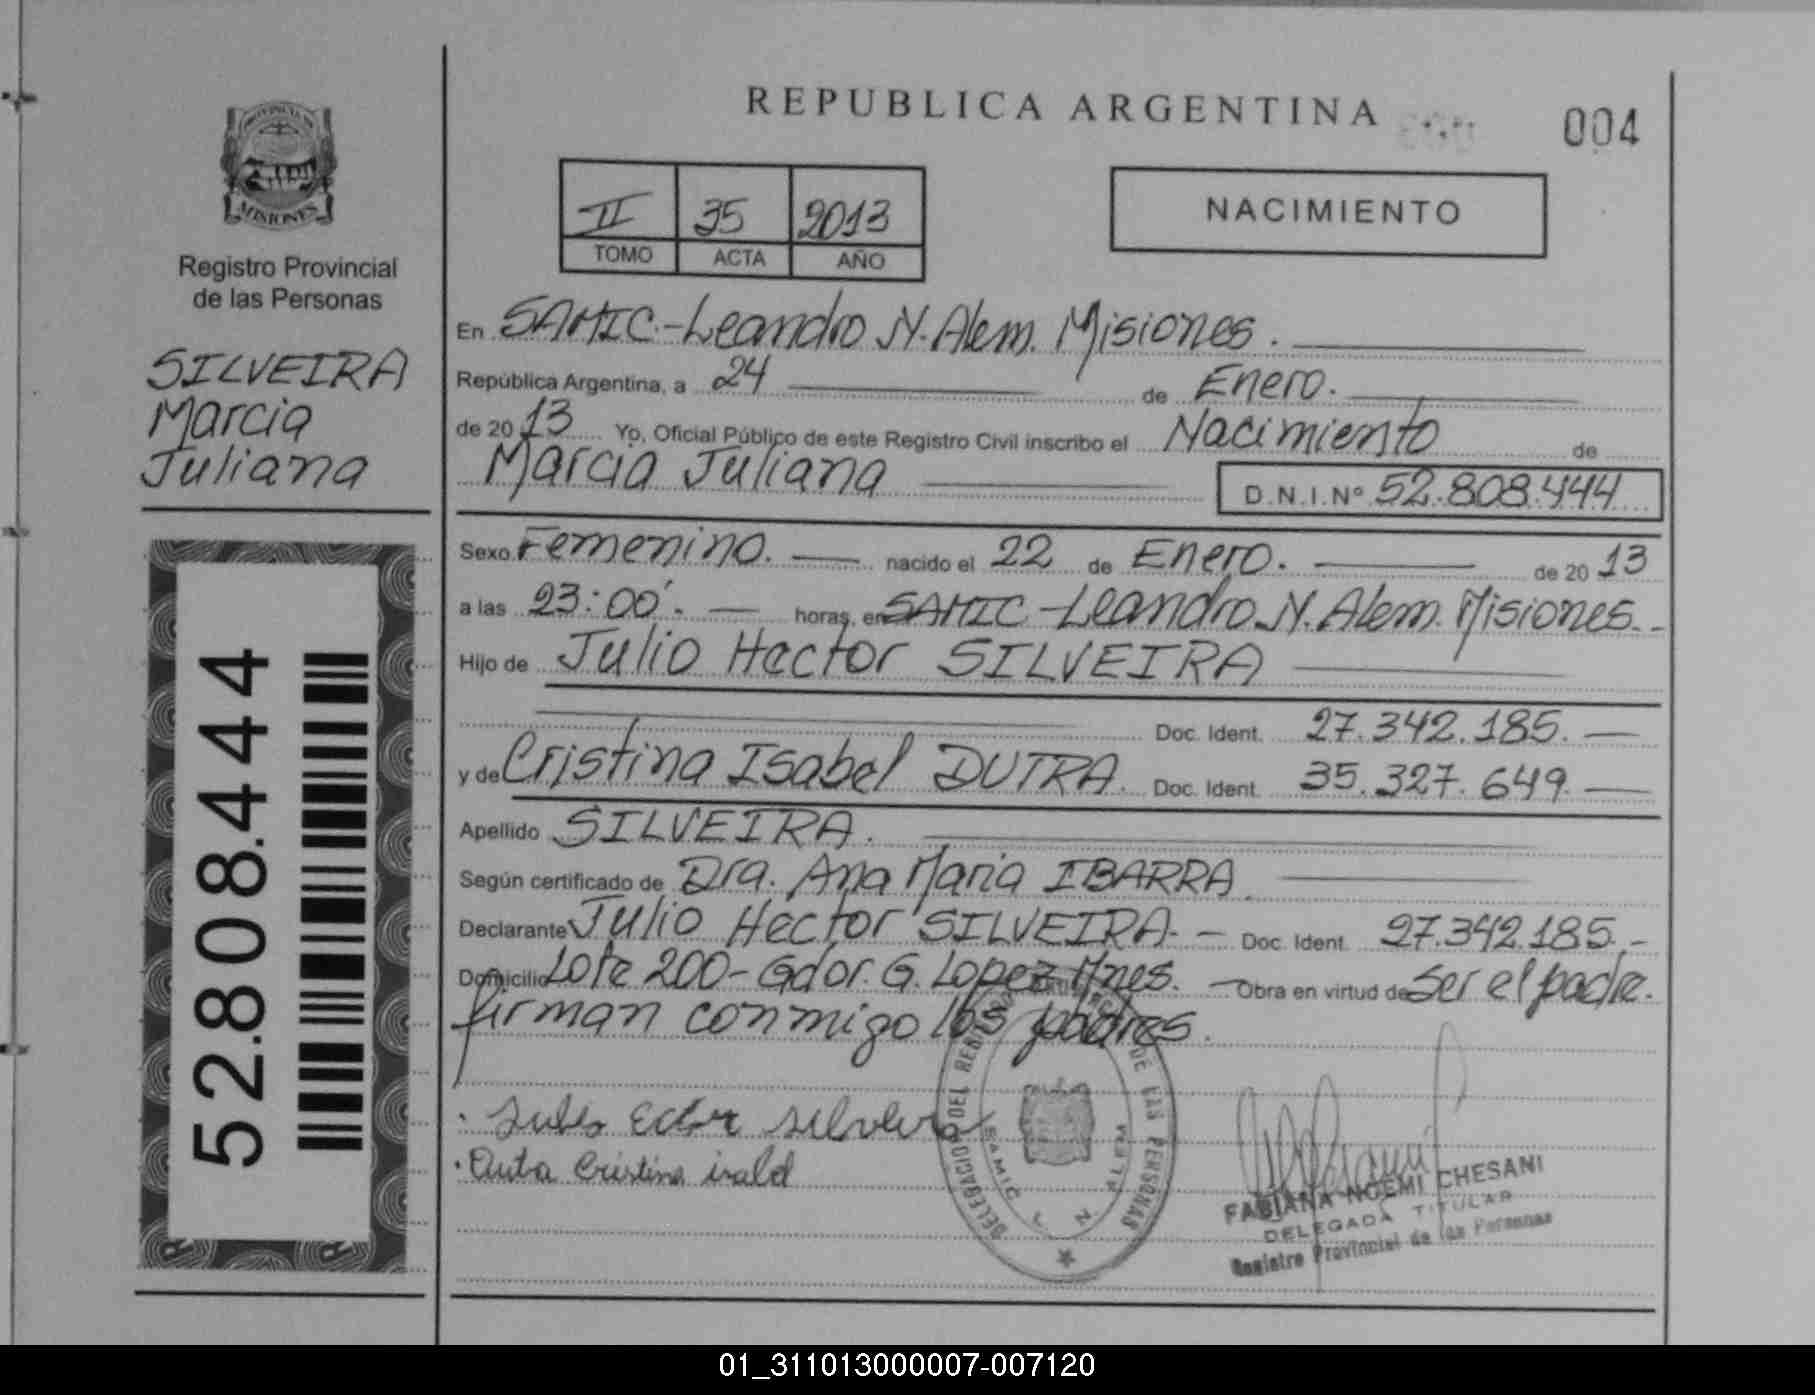 REPUBLICA ARGENTINA
004
PROVINCIA DE
MISIONES
Registro Provincial
de las Personas
SILVEIRA
Marcia
Juliana
52.808.444
II 35 2013
TOMO ACTA AÑO
NACIMIENTO
En SAMIC.-Leandro N. Alem. Misiones.
República Argentina, a 24 de Enero.
de 2013 Yo, Oficial Público de este Registro Civil inscribo el Nacimiento de
Marcia Juliana D.N.I.Nº 52.808.444
Sexo Femenino. nacido el 22 de Enero. de 2013
a las 23:00'. horas, en SAMIC-Leandro N. Alem. Misiones.-
Hijo de Julio Hector SILVEIRA
Doc. Ident. 27.342.185.
y de Cristina Isabel DUTRA. Doc. Ident. 35.327.649.
Apellido SILVEIRA.
Según certificado de Dra. Ana Maria IBARRA
Declarante Julio Hector SILVEIRA.- Doc. Ident. 27.342.185.-
Domicilio Lote 200-Gdor. G. Lopez Mnes. Obra en virtud de ser el padre.
firman conmigo los padres.
DELEGACION DEL REGISTRO DE LAS PERSONAS
SAMIC L. N. ALEM
FABIANA NOEMI CHESANI
DELEGADA TITULAR
Registro Provincial de las Personas
01_311013000007-007120